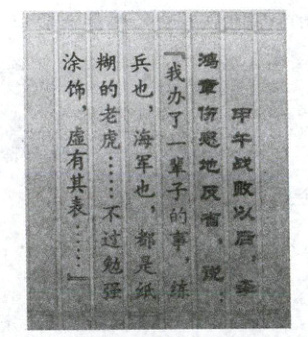 甲午战败以后，李
鸿章伤感地反省，说：
『我办了一辈子的事，练
兵也，海军也，都是纸
糊的老虎……不过勉强
涂饰，虚有其表……』